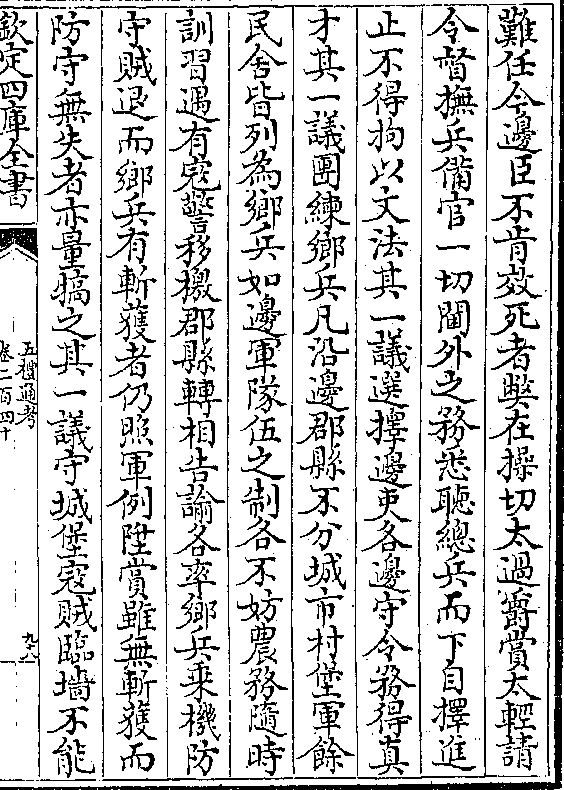 難任今邊臣不肯效死者弊在操切太過爵賞太輕請
令督撫兵備官一切閫外之務悉聽總兵而下自擇進
止不得拘以文法其一議選擇邊吏各邊守令務得真
才其一議團練鄉兵凡沿邊郡縣不分城市村堡軍餘
民舍皆列為鄉兵如邊軍隊伍之制各不妨農務隨時
訓習遇有寇警移檄郡縣轉相告諭各率鄉兵乘機防
守賊退而鄉兵有斬獲者仍照軍例陞賞雖無斬獲而
防守無失者亦量犒之其一議守城堡寇賊臨墻不能
欽定四庫全書
五禮通考
卷二百四十
九十八